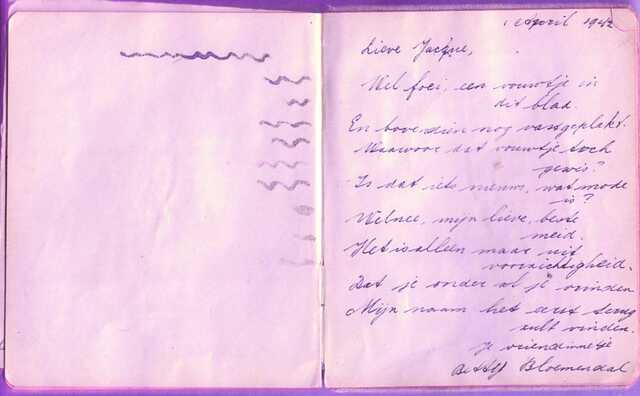 1 April 1942
Lieve Jacque,
Wel foei, een vouwtje in
dit blad.
En bovendien nog vastgeplakt.
Waarvoor dat vouwtje toch
gewis?
Is dat iets nieuws, wat mode
is?
Welnee, mijn lieve, beste
meid.
Het is alleen maar uit
voorzichtigheid.
Dat je onder al je vrinden
Mijn naam het eerst terug
zult vinden.
je vriendinnetje
Betsy Bloemendal